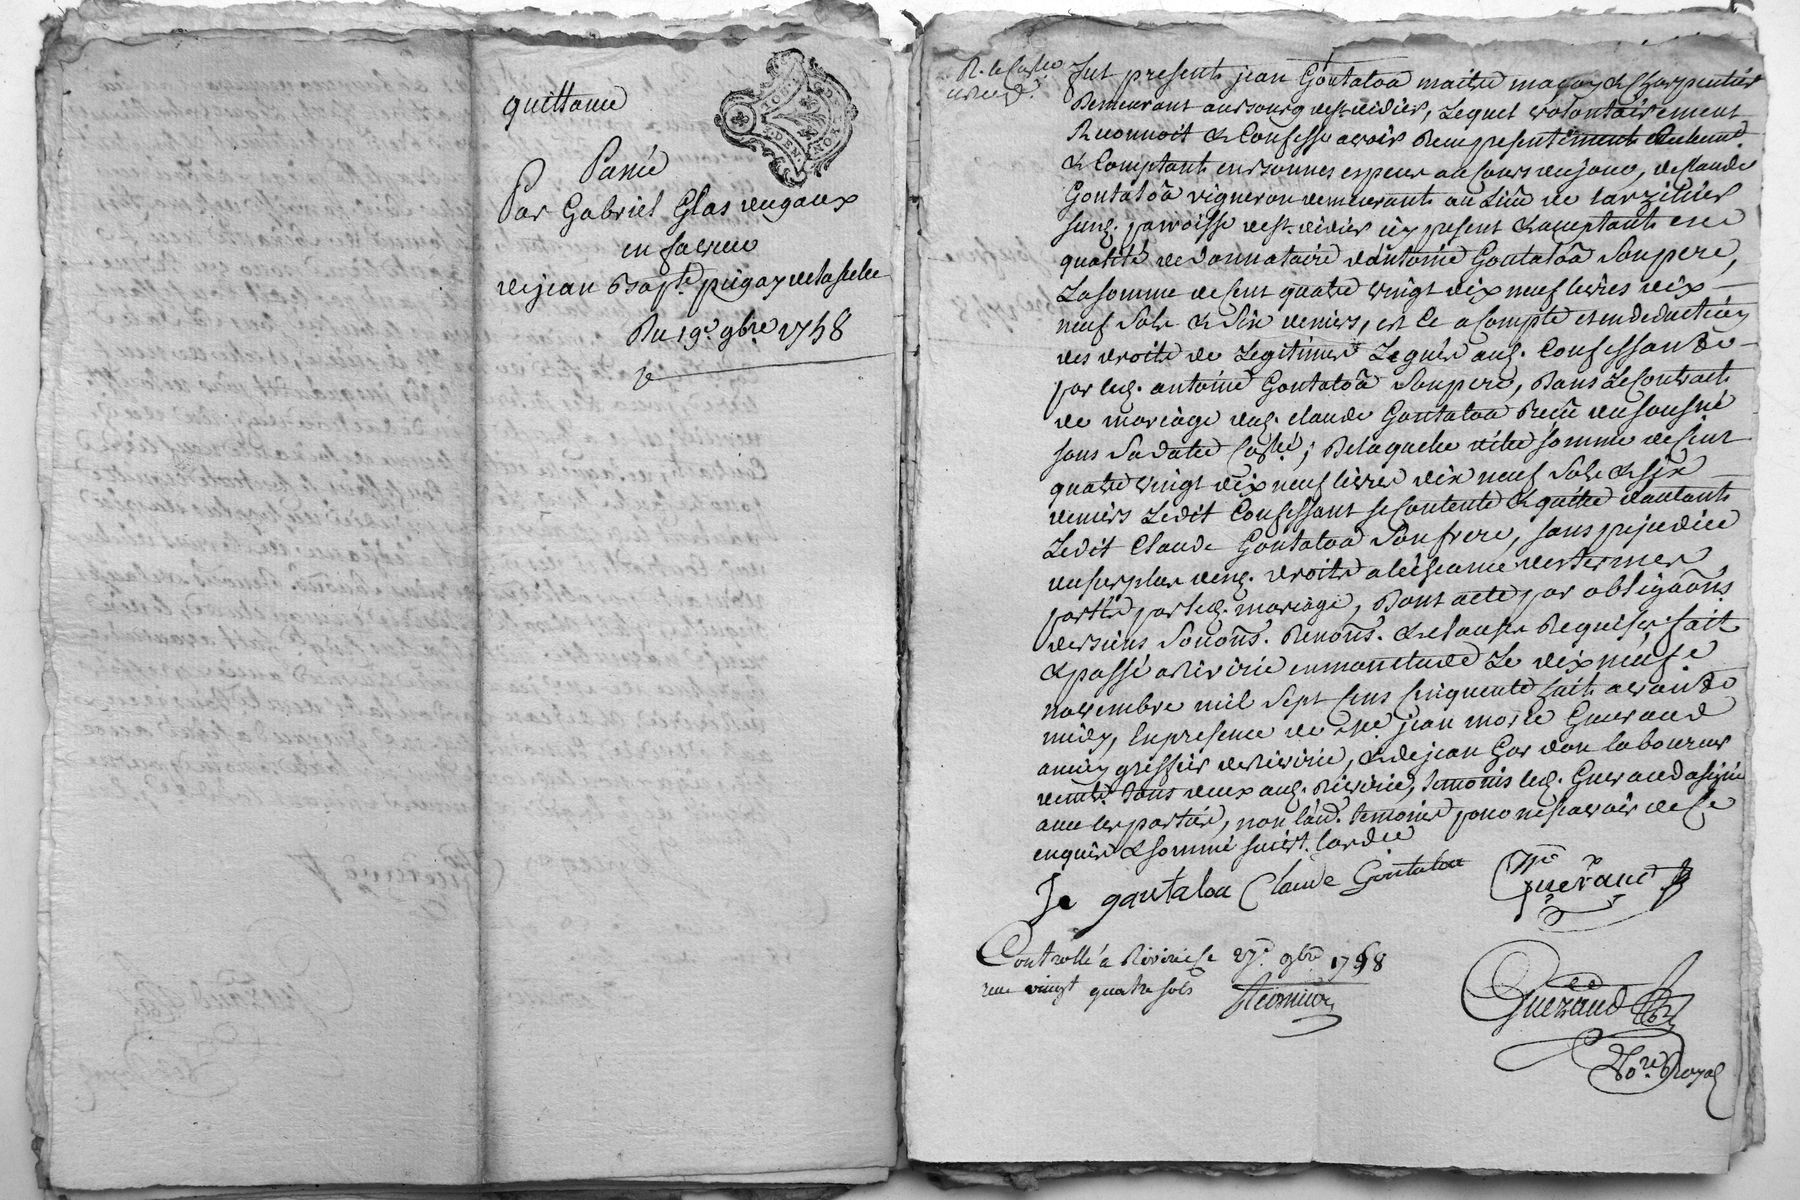 quittance
Passée
Par Gabriel Glas dugaux
en faveur
de jean Bapte. pugay
Du 19e. 9bre. 1758
fut present jean Gontaloa maitre maçon & Charpentier
Demeurant au Bourg de st. didier, Lequel volontairement
Reconnoit & Confesse avoir Reçu presentement
& Comptant en Bonnes especes au Cours du jour, de Claude
Gontaloa vigneron demeurant au Lieu de
susd. parroisse de st. didier icy present & acceptant en
qualité de donnataire d'antoine Gontaloa Son pere,
La somme de Cent quatre vingt dix neuf livres dix
neuf Sols & Six deniers, et Ce a Compte et en deduction
des droits de Legitime Legués aud. Confessant
par led. antoine Gontaloa Son pere, Dans Le Contract
de mariage dud. Claude Gontaloa Reçu du sousné
sous Sa datte ; De laquelle ditte somme de Cent
quatre vingt dix neuf livres dix neuf Sols & six
deniers Ledit Confessant se Contente & quitte d'autant
Ledit Claude Gontaloa Son frere, sans prejudice
du surplus desd. droits a l'écheance des termes
portés par led. mariage, Dont acte par obligaôns
des biens Soumôns. Renonôns. & clauses Requises fait
& passé a Riverie en mon etude Le dix neuf
novembre mil Sept Cens Cinquante huit avant
midy, En presence de Me. jean marie Guerand
ancien greffier de Riverie, & de jean Gar don laboureur
demt. tous deux aud. Riverie, temoins led. Guerand a signé
avec les parties, non l'aud. temoin pour ne sçavoir de Ce
enquis & sommé suivt. l'ordce
Je gontaloa Claude Gontaloa Guerand
Controllé a Riverie le 27e. 9bre 1758
reçu vingt quatre sols
Guerand
Nore. Royal